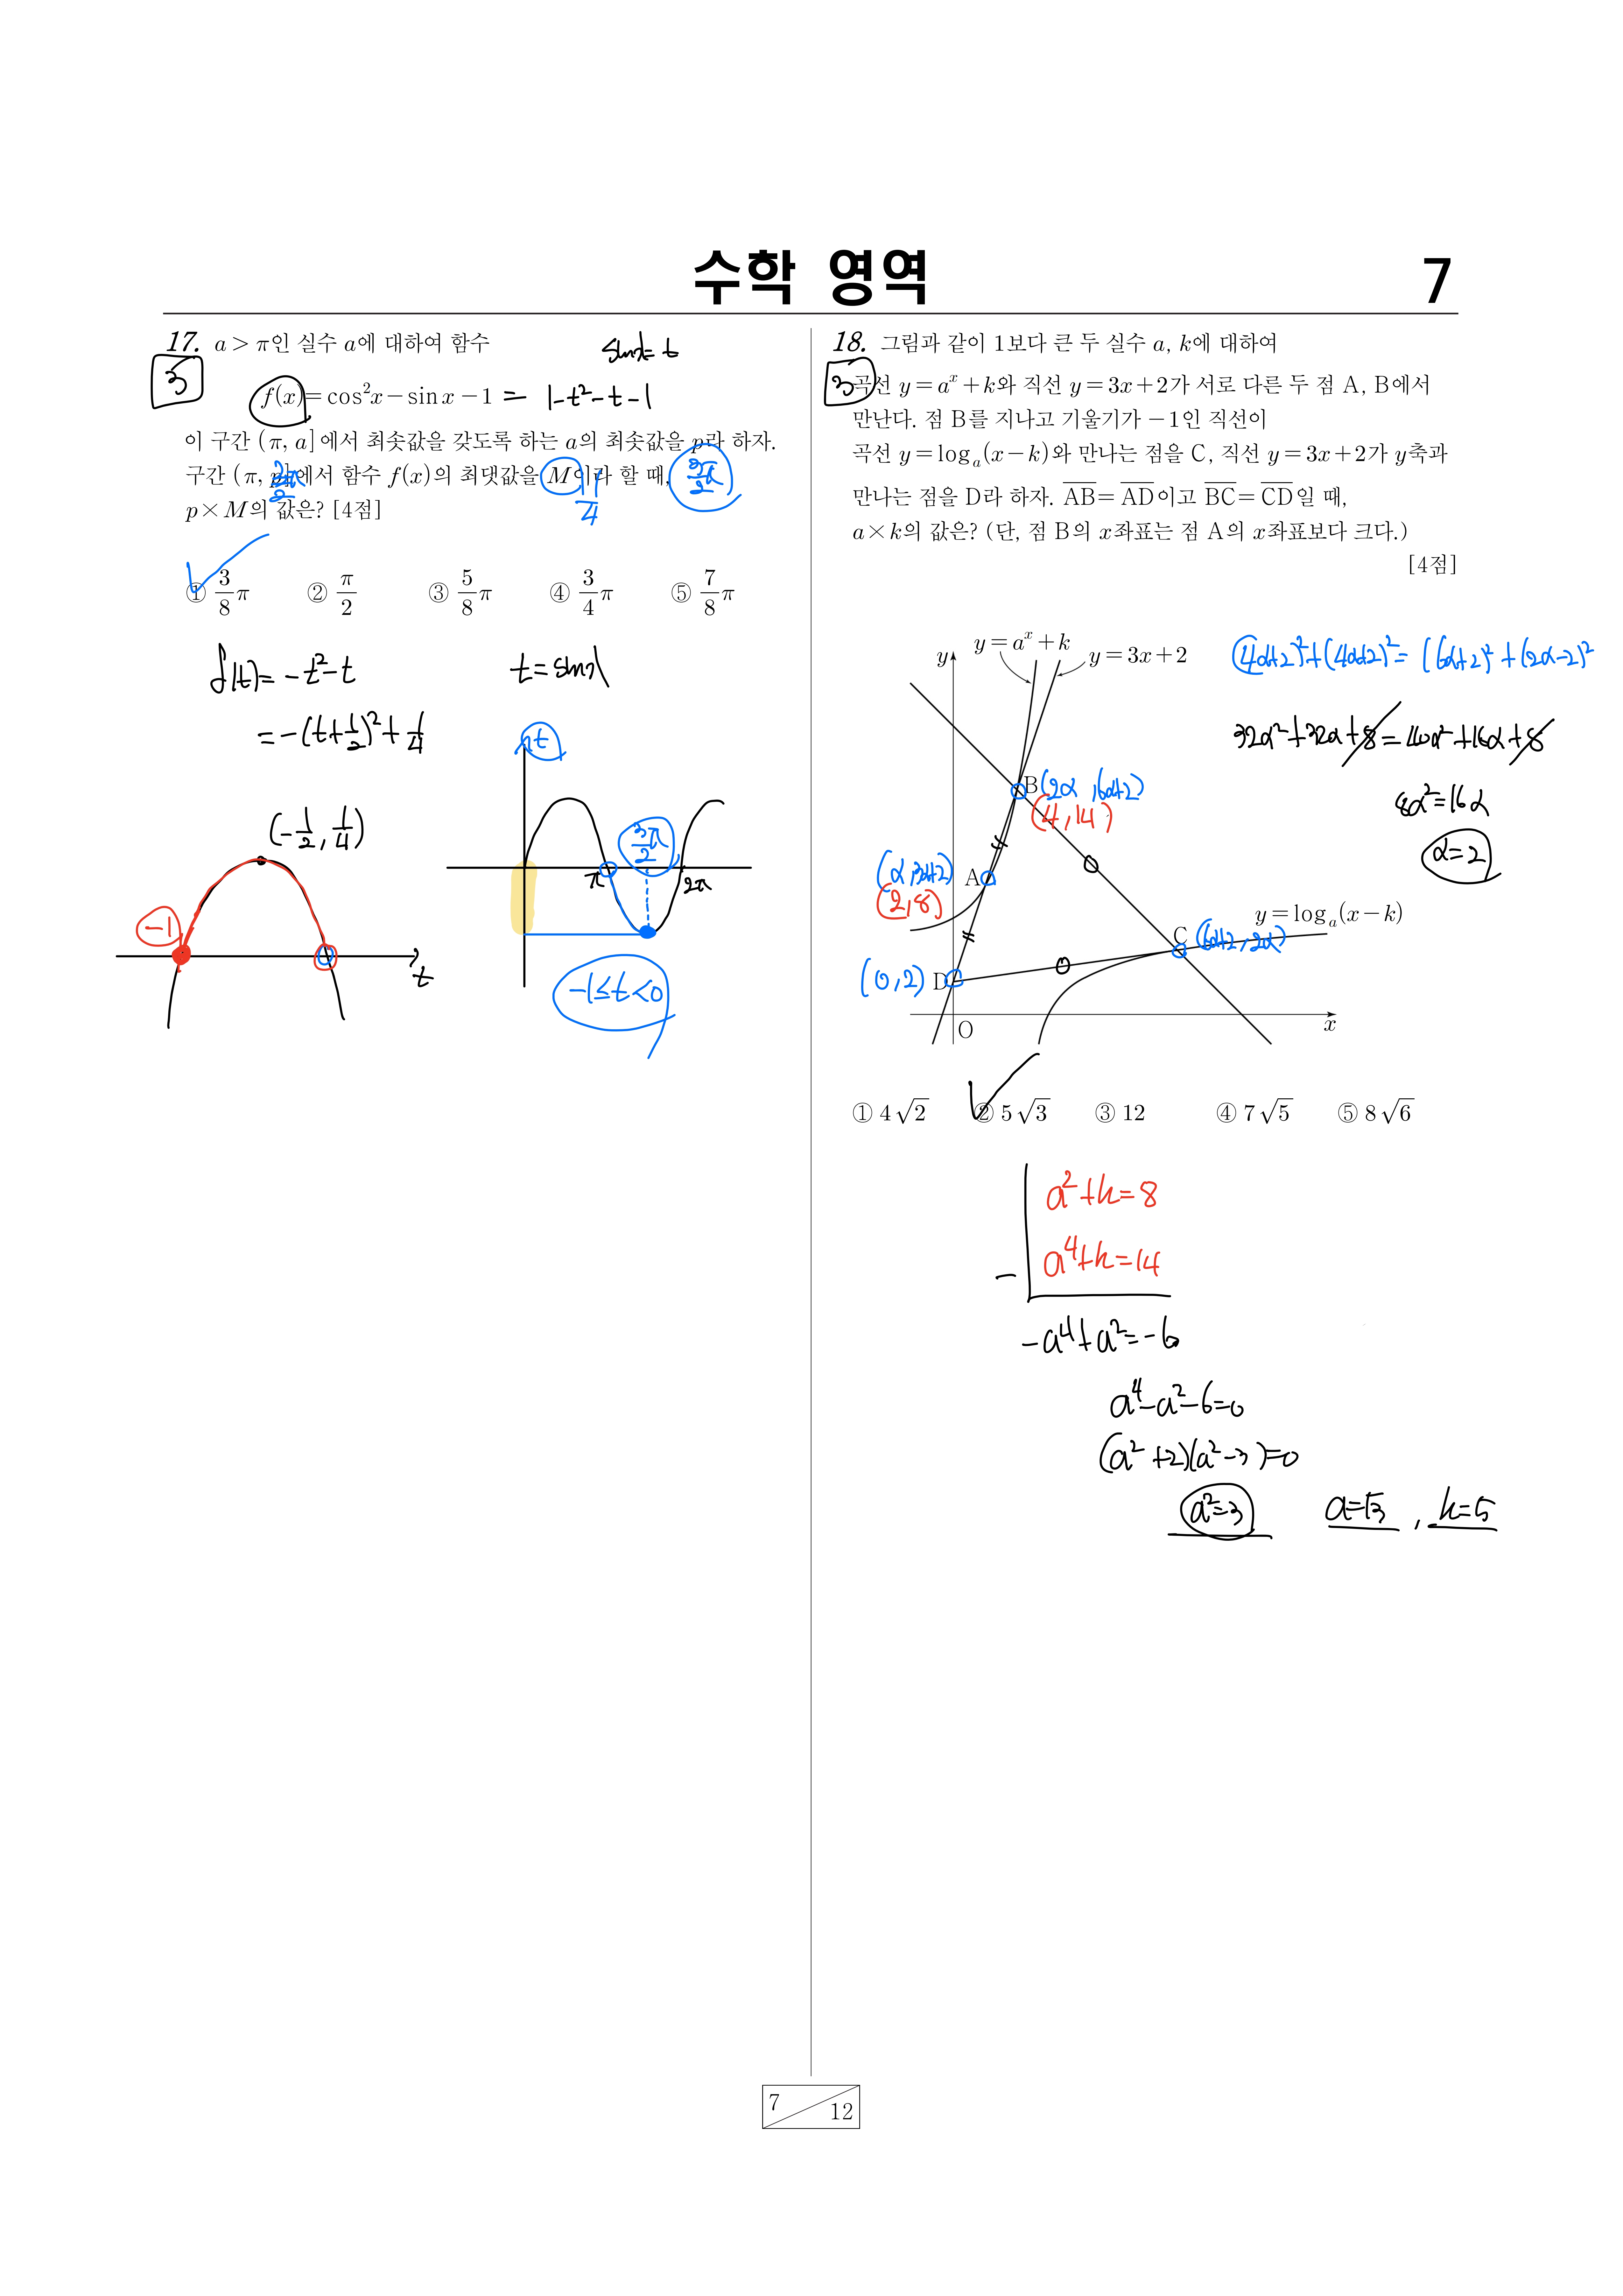 수학 영역
7
17. a > π인 실수 a에 대하여 함수
sinx = t
3
f(x) = cos²x − sin x − 1 = 1−t²−t−1
이 구간 (π, a]에서 최솟값을 갖도록 하는 a의 최솟값을 p라 하자.
구간 (π, p]에서 함수 f(x)의 최댓값을 M이라 할 때,
3/2π
1/4
3/2π
p×M의 값은? [4점]
① 3/8π ② π/2 ③ 5/8π ④ 3/4π ⑤ 7/8π
f(t) = −t²−t
t = sinx
= −(t+1/2)²+1/4
(−1/2, 1/4)
−1
t
t
π
3/2π
2π
−1≤t<0
18. 그림과 같이 1보다 큰 두 실수 a, k에 대하여
3
곡선 y = aˣ + k와 직선 y = 3x + 2가 서로 다른 두 점 A, B에서
만난다. 점 B를 지나고 기울기가 −1인 직선이
곡선 y = logₐ(x − k)와 만나는 점을 C, 직선 y = 3x + 2가 y축과
만나는 점을 D라 하자. AB = AD이고 BC = CD일 때,
a×k의 값은? (단, 점 B의 x좌표는 점 A의 x좌표보다 크다.)
[4점]
y = aˣ + k
y = 3x + 2
y
B (2α, 6α+2)
(4, 14)
(α, 3α+2) A
(2, 8)
y = logₐ(x − k)
C (6α+2, 2α)
(0, 2) D
O
x
(4α+2)²+(4α+2)² = (6α+2)²+(2α−2)²
32α²+32α+8 = 40α²+16α+8
8α² = 16α
α=2
① 4√2 ② 5√3 ③ 12 ④ 7√5 ⑤ 8√6
a²+k=8
− a⁴+k=14
−a⁴+a²=−6
a⁴−a²−6=0
(a²+2)(a²−3)=0
a²=3 a=√3 , k=5
7 12